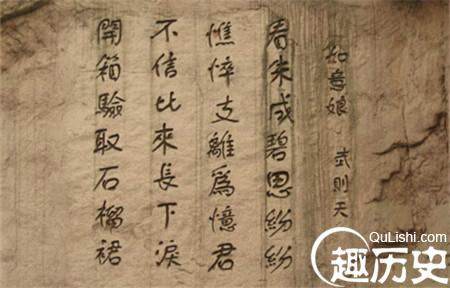 如意娘 武则天
看朱成碧思紛紛
憔悴支離爲憶君
不信比來長下淚
開箱驗取石榴裙
QuLishi.com
趣历史